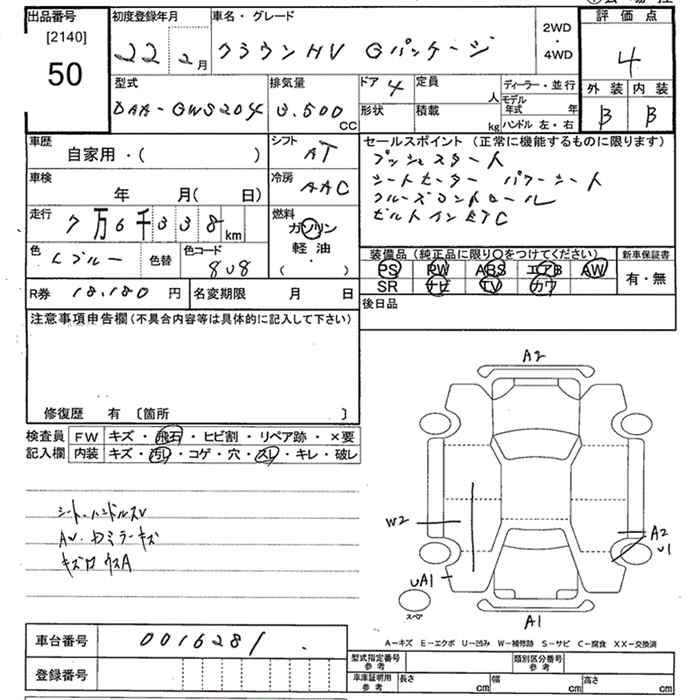 出品番号
[2140]
50
初度登録年月
22 2月
車名・グレード
クラウンHV Gパッケージ
2WD
・
4WD
評価点
4
外装 内装
B B
型式
DAA-GWS204
排気量
3.500
CC
ドア 4
形状
定員
人
積載
kg
ディーラー・並行
モデル年式 年
ハンドル 左・右
車歴
自家用・( )
シフト
AT
車検
年 月( 日)
冷房
AAC
走行
7万6千338km
燃料
ガソリン
軽油
・
( )
色
Lブルー
色替
色コード
8U8
R券 18,180 円
名変期限 月 日
セールスポイント (正常に機能するものに限ります)
プッシュスタート
シートヒーター パワーシート
クルーズコントロール
ビルトインETC
装備品(純正品に限り〇をつけてください)
PS PW ABS エアB AW
SR ナビ TV カワ
新車保証書
有・無
後日品
注意事項申告欄(不具合内容等は具体的に記入して下さい)
修復歴 有 〔箇所 〕
検査員記入欄
FW キズ・飛石・ヒビ割・リペア跡・×要
内装 キズ・汚レ・コゲ・穴・スレ・キレ・破レ
シート・ハンドルスレ
AW・ドミラーキズ
A2
W2
A2
U1
UA1
スペア
A1
A-キズ E-エクボ U-凹み W-補修跡 S-サビ C-腐食 XX-交換済
車台番号 0016281
登録番号
型式指定番号
参考
類別区分番号
参考
車庫証明用
参考
長さ cm 幅 cm 高さ cm